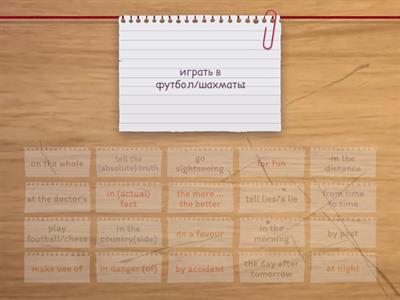 играть в
футбол/шахматы
on the whole
tell the
(absolute) truth
go
sightseeing
for fun
in the
distance
at the doctor's
in (actual)
fact
the more ...
the better
tell lies/a lie
from time
to time
play
football/chess
in the
country(side)
do a favour
in the
morning
by post
make use of
in danger (of)
by accident
the day after
tomorrow
at night